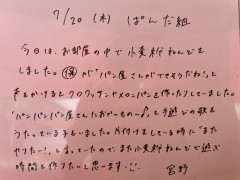 7/20(木) ぱんだ組
今日は、お部屋の中で小麦粉ねんどを
しました。㋭が「パン屋さんができそうだね!」と
声をかけるとクロワッサンやメロンパンを作ったりしていました。
「パンパンパン屋さんにおかいもの〜♪」と手遊びの歌を
うたっている子もいました。片付けをしている時に「また
やりたい!」と言っていたので、また小麦粉ねんどで遊ぶ
時間を作りたいと思います…!!
宮野